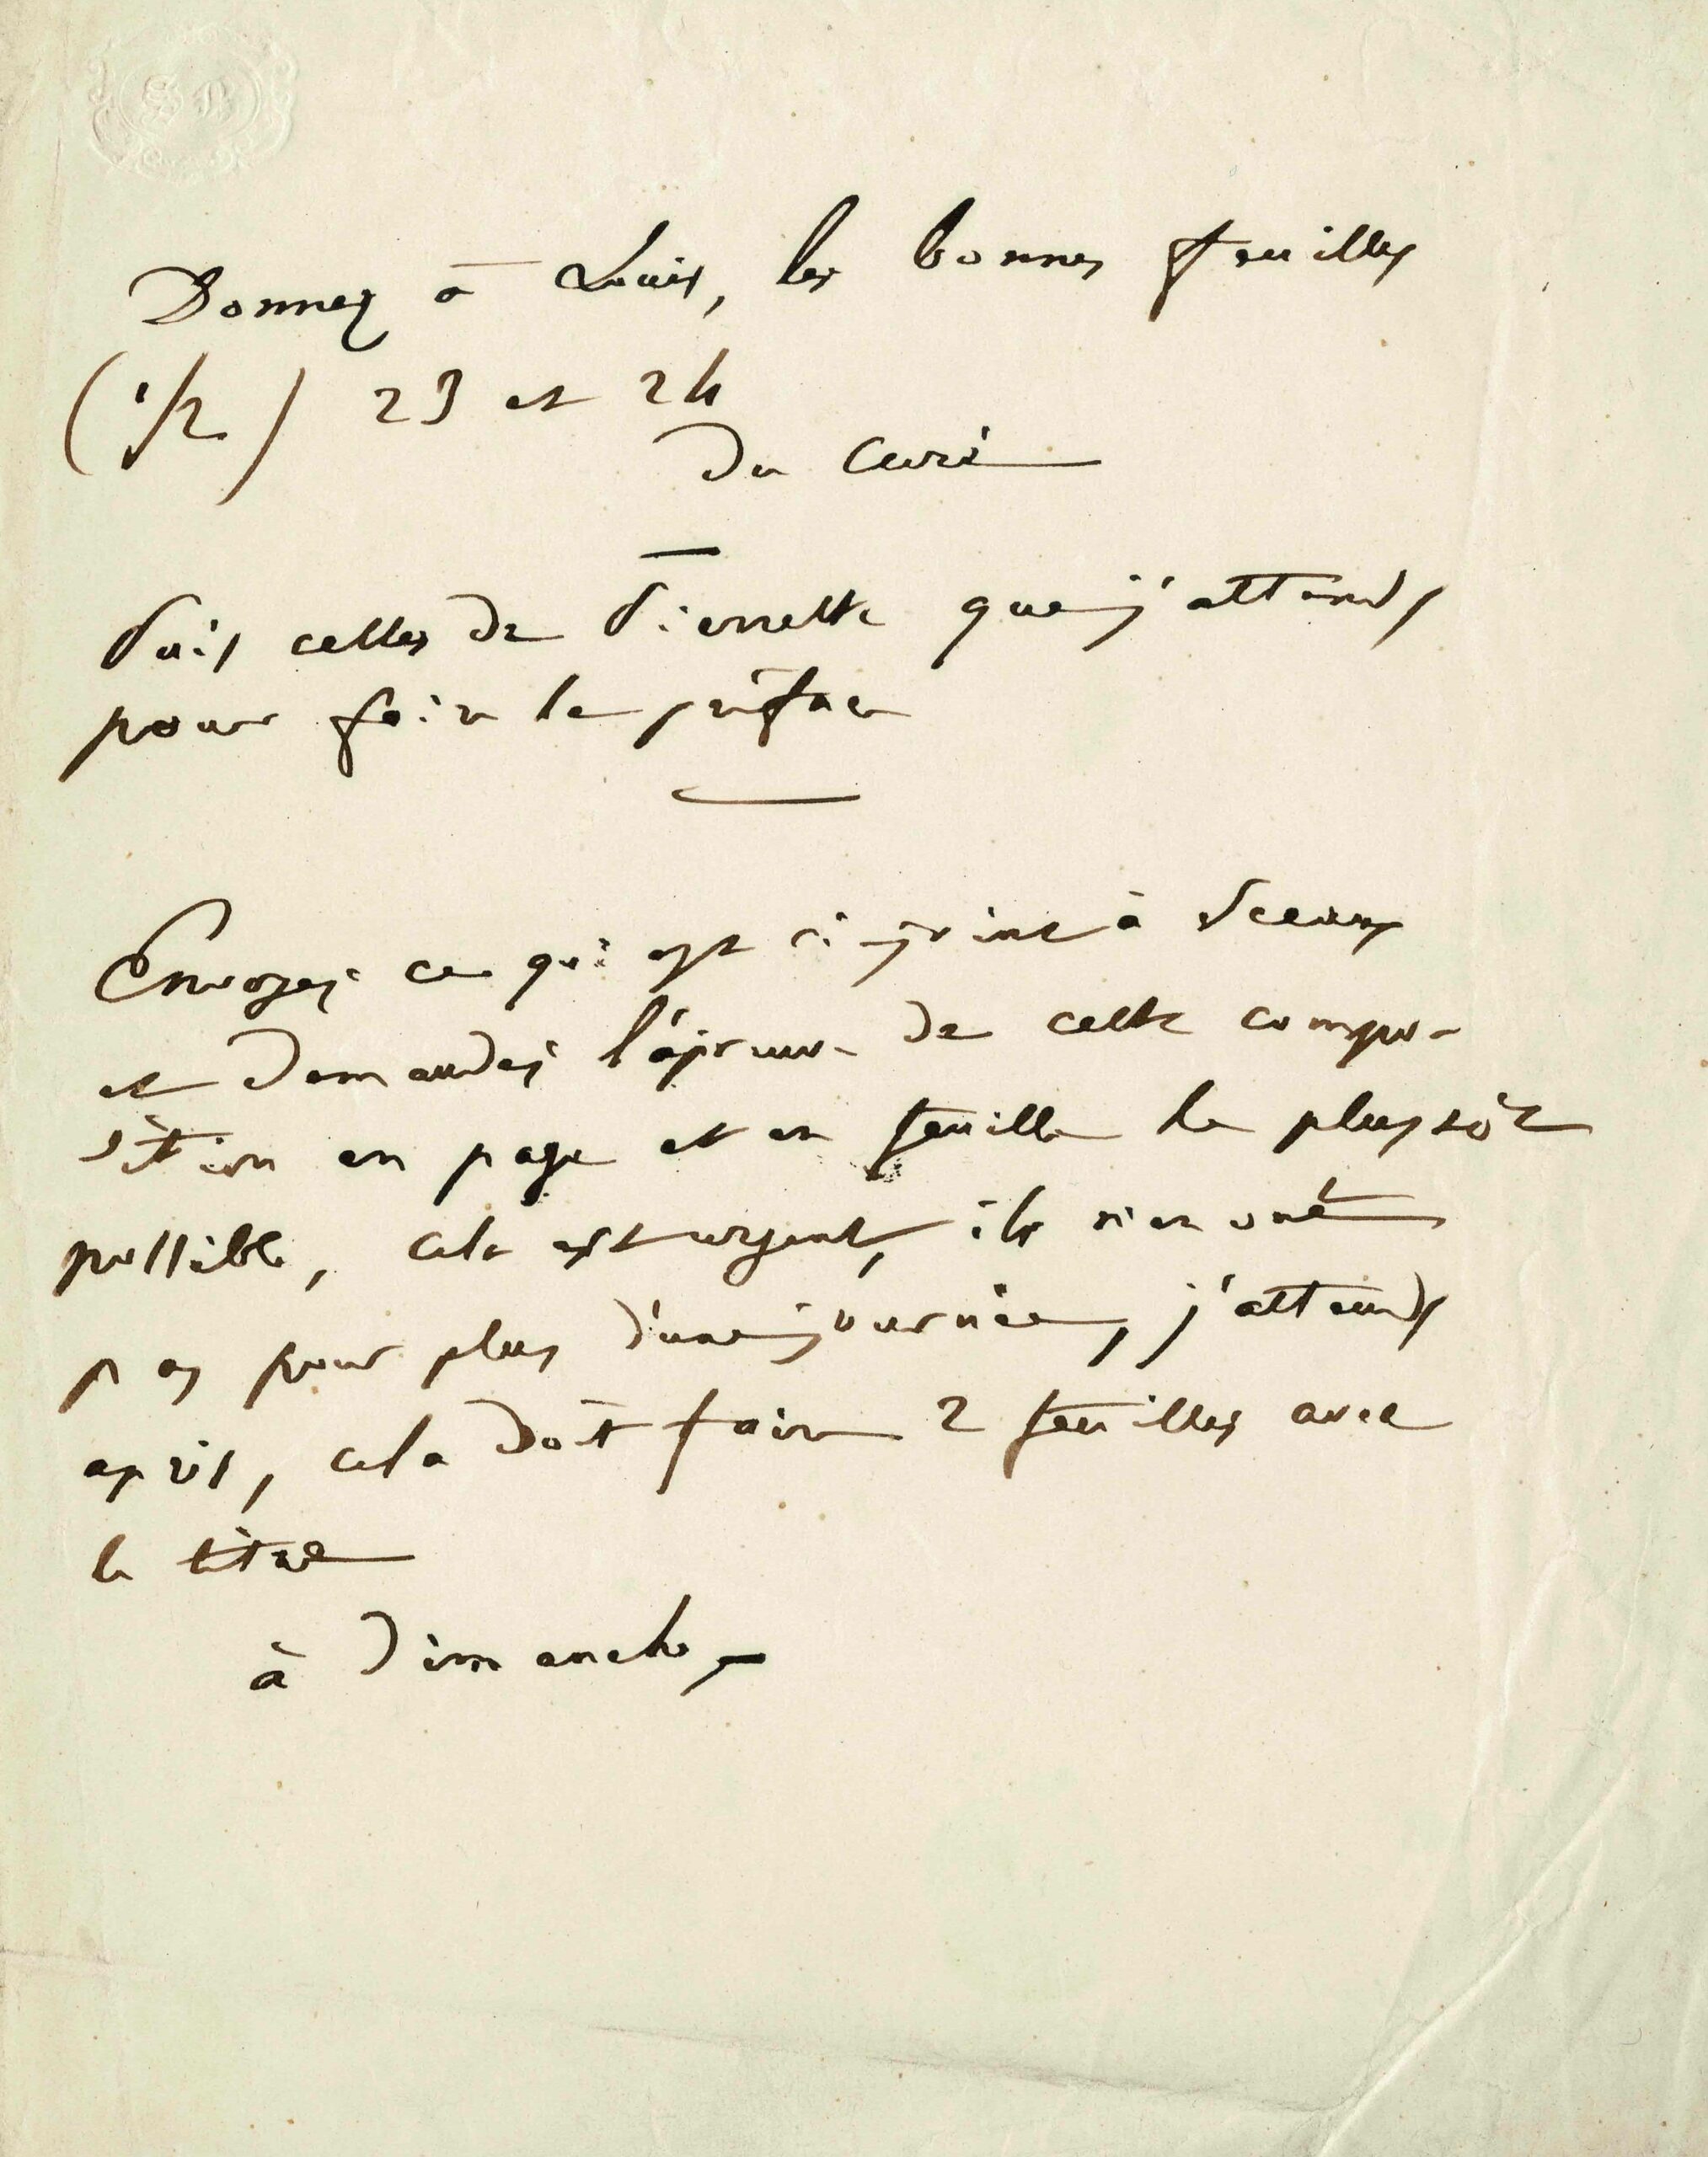 Donnez à Louis, les bonnes feuilles
(1/2) 23 et 24
du curé
Puis celles de Pierrette que j'attends
pour faire la préface
Envoyez ce qui est ci-joint à Sceaux
et demandez l'épreuve de cette compo-
sition en page et en feuille le plus tôt
possible, cela est urgent, ils n'en ont
pas pour plus d'une journée, j'attends
après, cela doit faire 2 feuilles avec
le titre
à dimanche